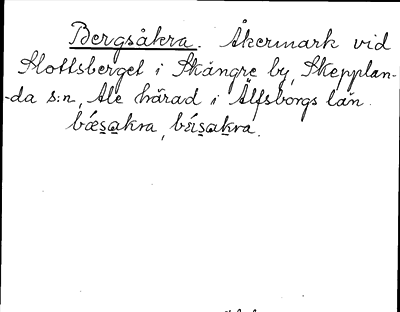 Bergsåkra. Åkermark vid
Slottsberget i Skångre by, Skepplan-
-da s:n, Ale härad i Älfsborgs län.
bǽsakra, bǽsakra.